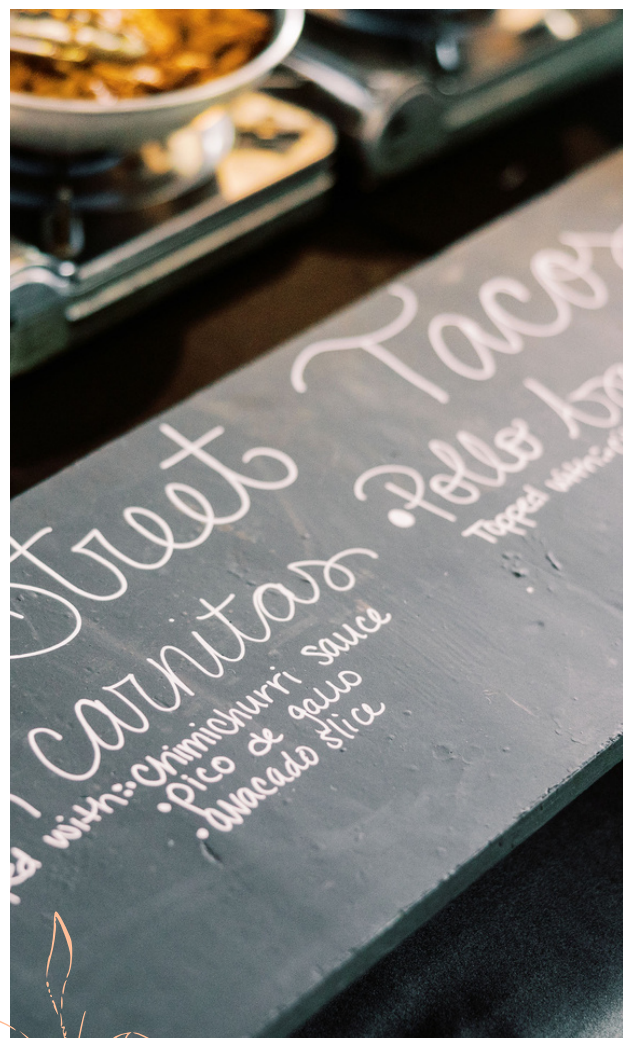 Street Tacos
carnitas
with: • Chimichurri sauce
• Pico de gallo
• avacado slice
• Pollo
Topped with: